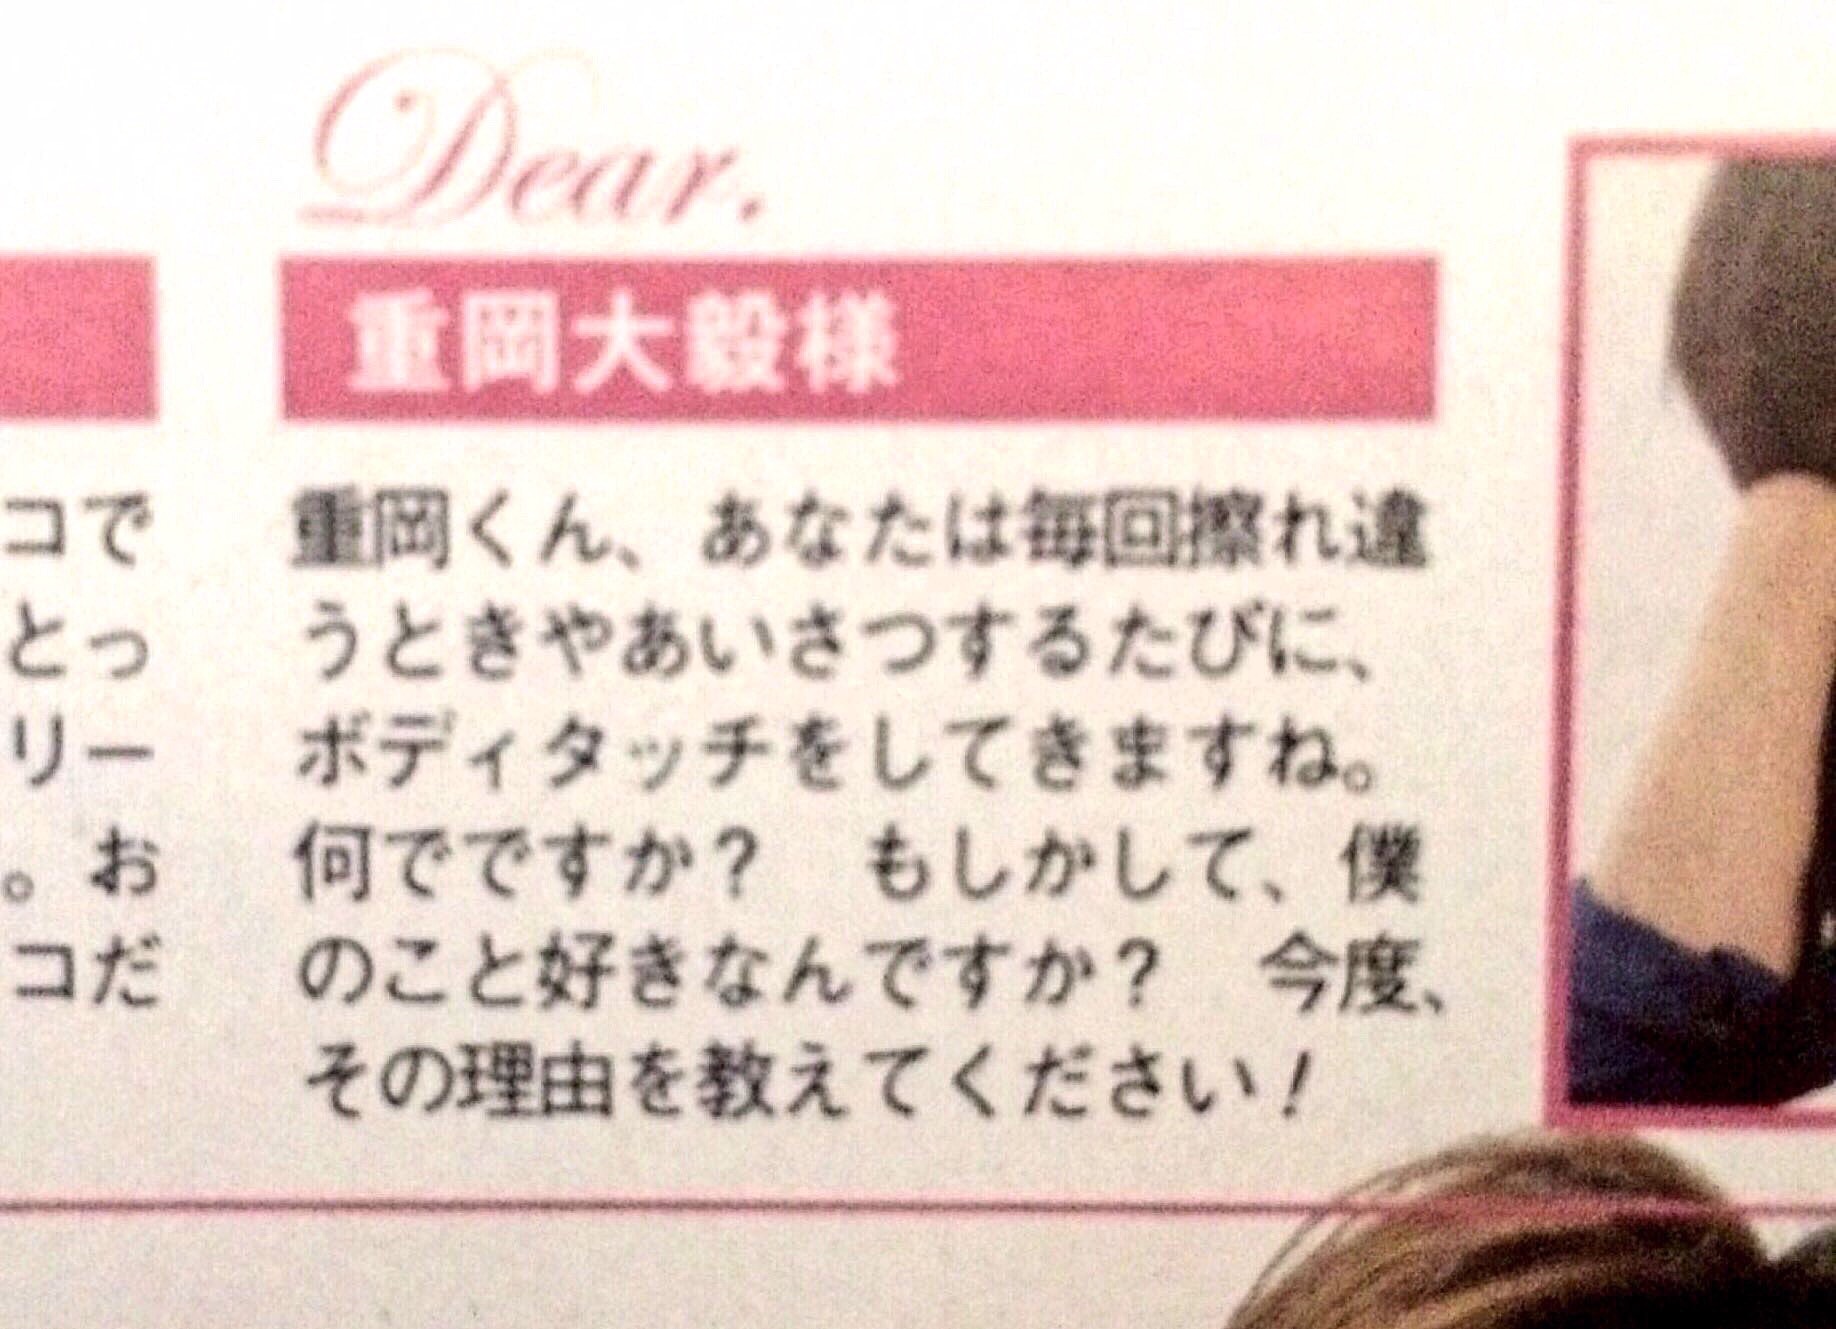 Dear.
重岡大毅様
重岡くん、あなたは毎回擦れ違
うときやあいさつするたびに、
ボディタッチをしてきますね。
何でですか？　もしかして、僕
のこと好きなんですか？　今度、
その理由を教えてください！
コで
とっ
リー
。お
コだ